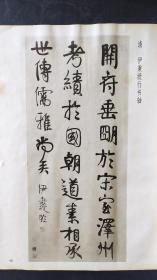 開府垂明於宋室澤州
考績於國朝道素相承
世傳儒雅尚矣 伊秉綬
清 伊秉绶行书轴